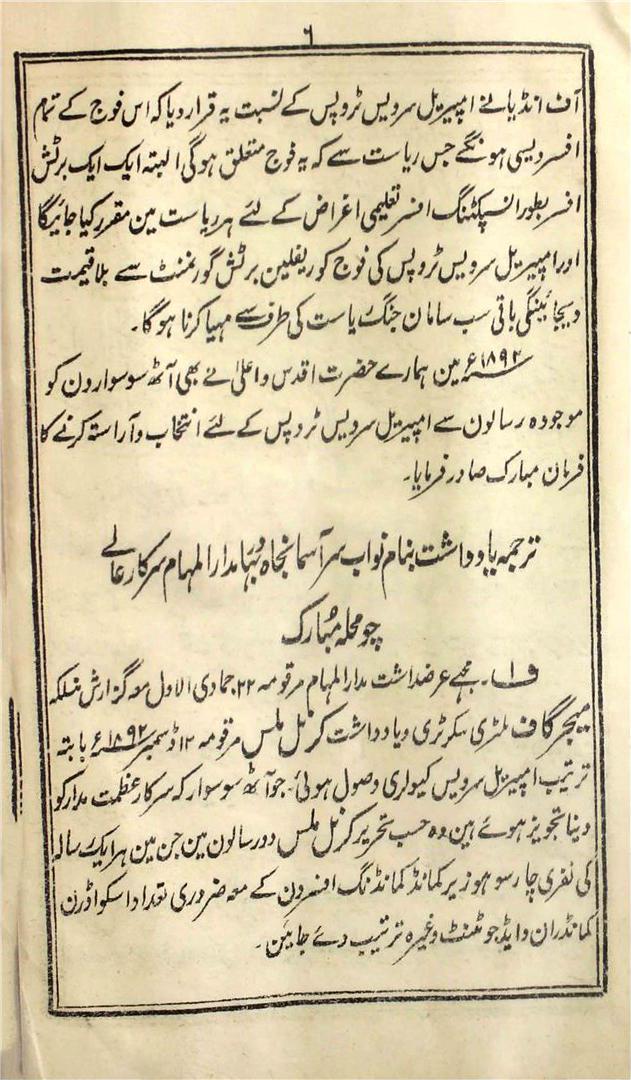 ٦
آف انڈیا نے امپیریل سرویس ٹروپس کے نسبت یہ قرار دیا کہ اس فوج کے تمام
افسر دیسی ہونگے جس ریاست سے کہ یہ فوج متعلق ہوگی البتہ ایک ایک برٹش
افسر بطور انسپکٹنگ افسر تعلیمی اغراض کے لئے ہر ریاست مین مقرر کیا جائیگا
اور امپیریل سرویس ٹروپس کی فوج کو ریفلین برٹش گورنمنٹ سے بلا قیمت
دیجائینگی باقی سب سامان جنگ ریاست کی طرف سے مہیا کرنا ہوگا۔
سنہ ۱۸۹۲ء مین ہمارے حضرت اقدس و اعلیٰ نے بھی آٹھ سو سوارون کو
موجودہ رسالون سے امپیریل سرویس ٹروپس کے لئے انتخاب و آراستہ کرنے کا
فرمان مبارک صادر فرمایا۔
ترجمہ یادداشت بنام نواب سر آسمانجاہ بہادر مدارالمہام سرکار عالے
چو محلہ مبارک
ف۱۔ مجھے عرضداشت مدارالمہام مرقومہ ۲۲ جمادی الاول معہ گزارش منسلکہ
میجر گاف ملٹری سکرٹری و یادداشت کرنل ملس مرقومہ ۱۲ ڈسمبر سنہ ۱۸۹۲ء بابتہ
ترتیب امپیریل سرویس کیولری وصول ہوئی۔ جو آٹھ سو سوار کہ سرکار عظمت مدار کو
دینا تجویز ہوئے ہین وہ حسب تحریر کرنل ملس دو رسالون مین جن مین ہر ایک رسالہ
کی نفری چار سو ہو زیر کمانڈ کمانڈنگ افسرون کے معہ ضروری تعداد اسکواڈرن
کمانڈران و ایڈجوٹنٹ وغیرہ ترتیب دئے جایئن۔